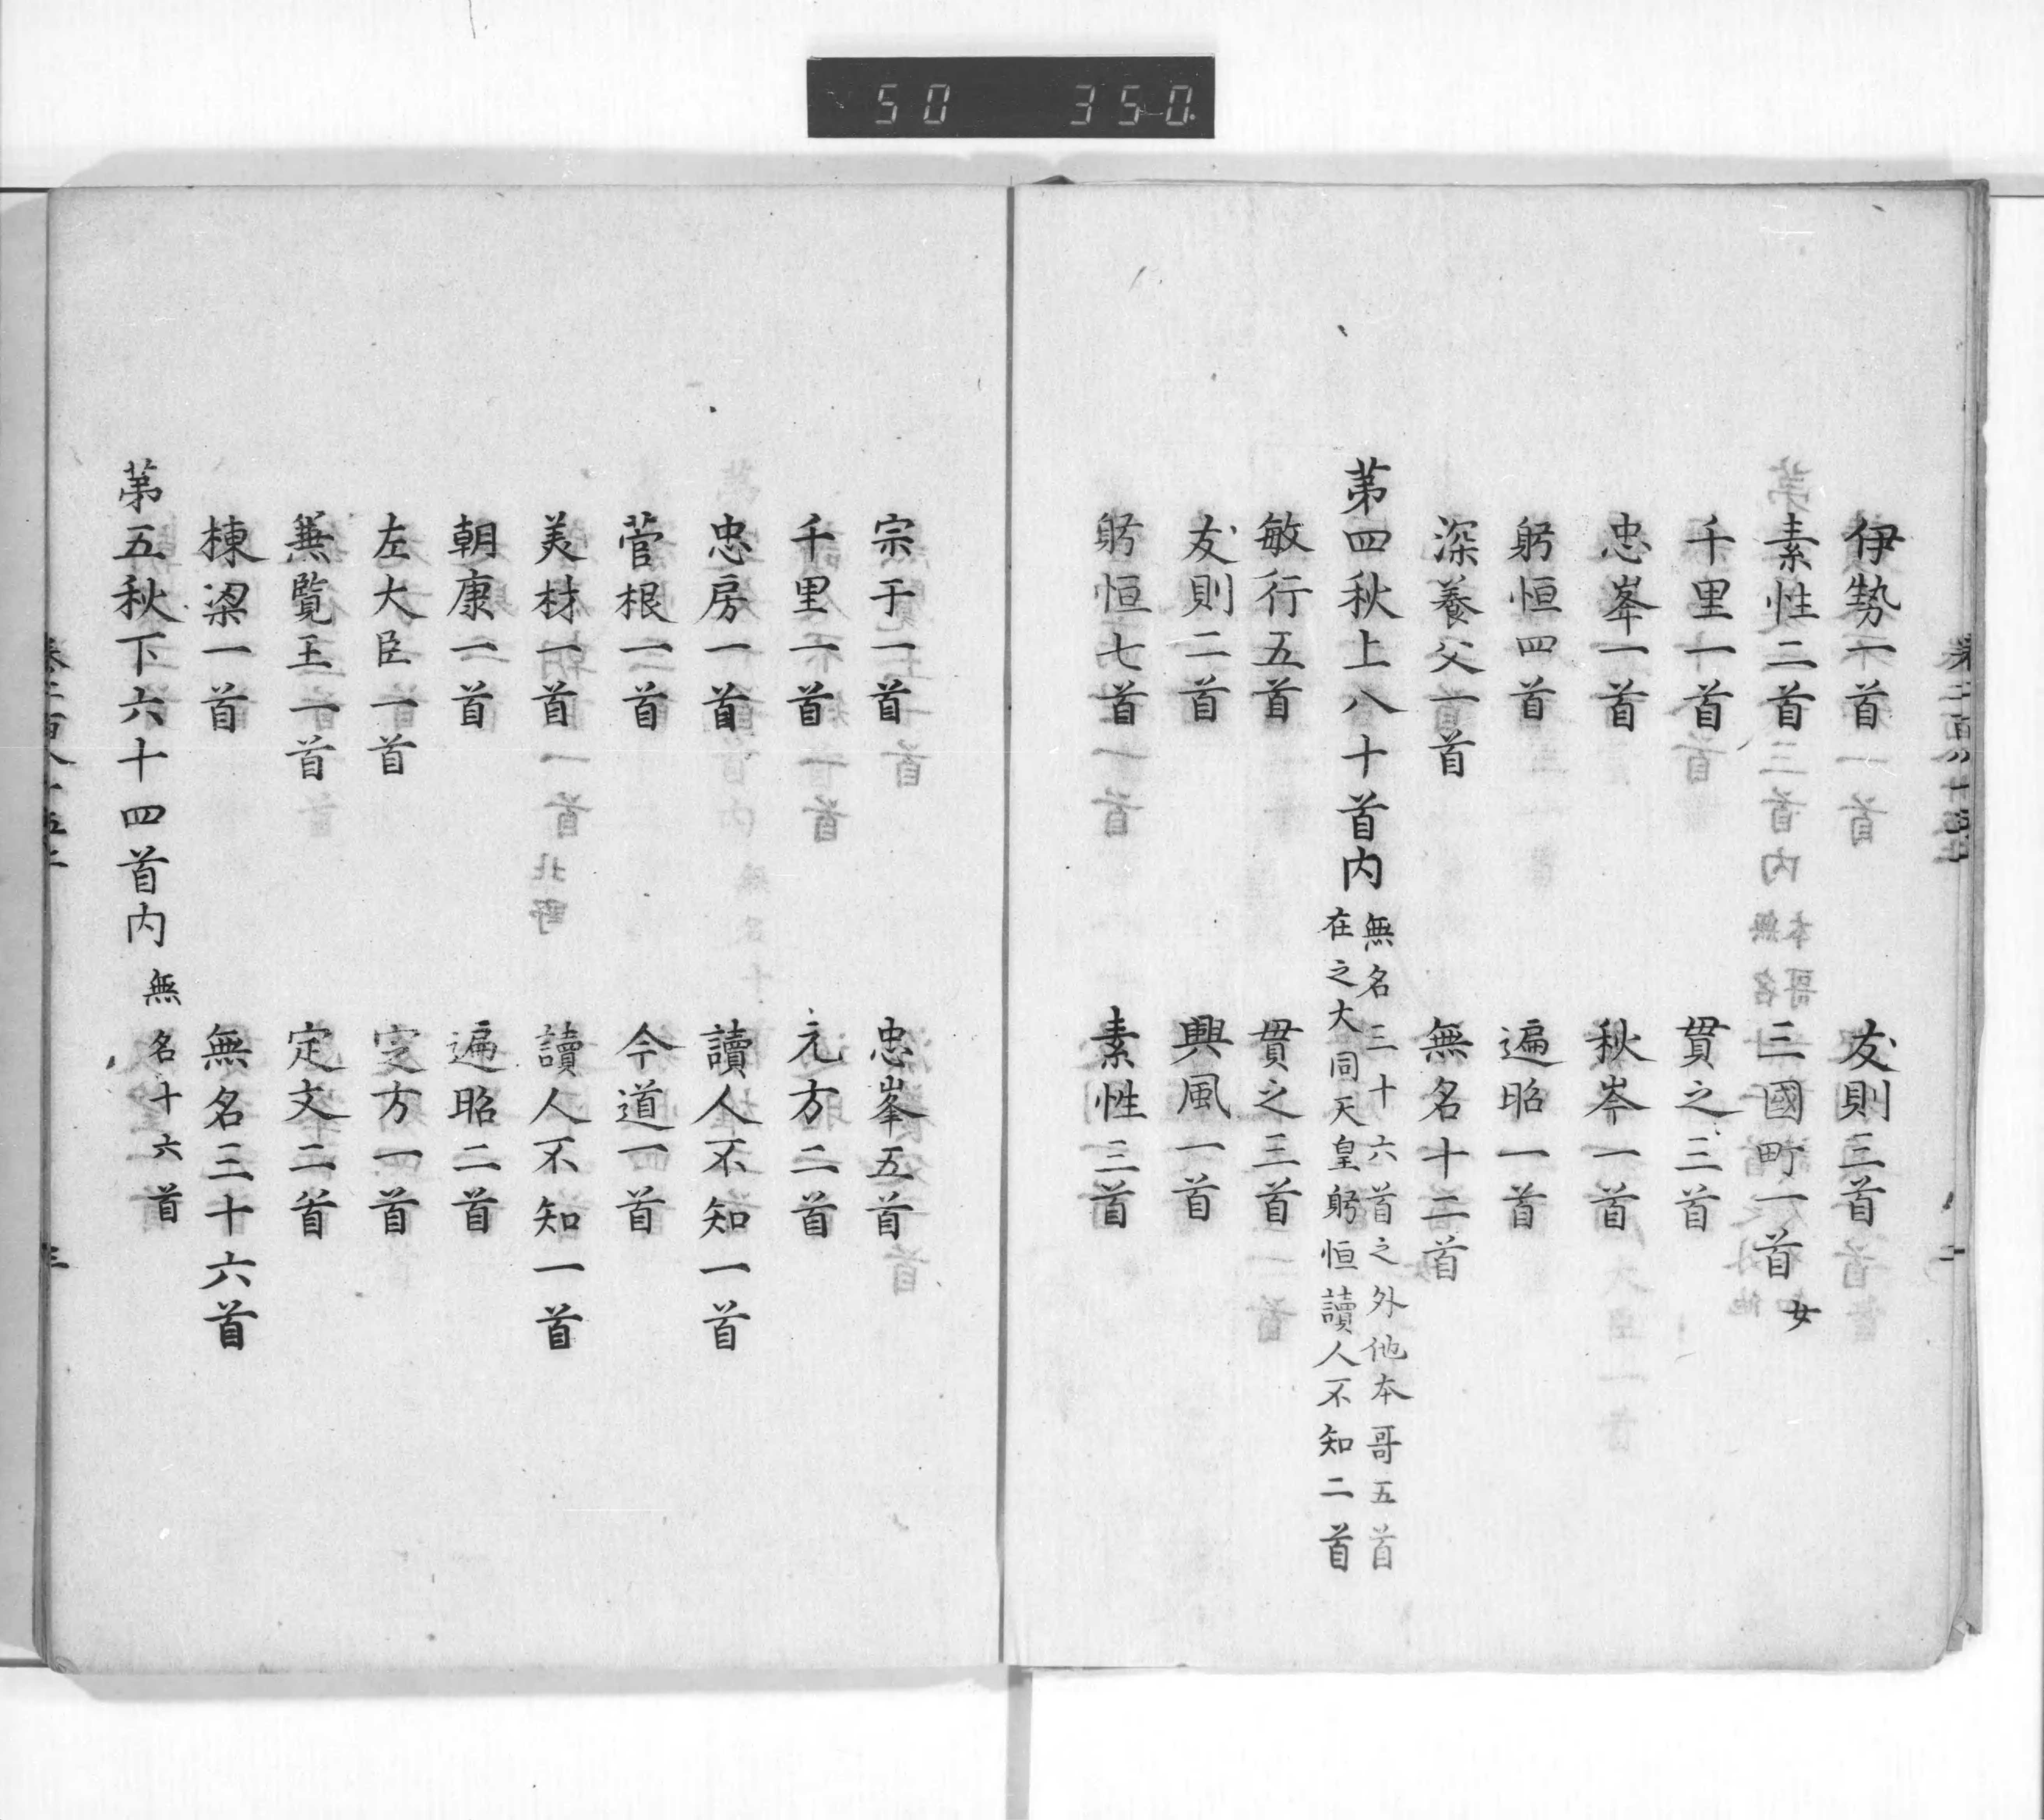 50 350
伊勢一首 友則三首
素性二首 三國町一首 女
千里一首 貫之三首
忠峯一首 秋岑一首
躬恒四首 遍昭一首
深養父一首 無名十二首
第四秋上八十首内 無名三十六首之外他本哥五首
在之大同天皇躬恒讀人不知二首
敏行五首 貫之三首
友則二首 興風一首
躬恒七首 素性三首
宗于一首 忠峯五首
千里一首 元方二首
忠房一首 讀人不知一首
菅根一首 今道一首
美材一首 讀人不知一首
朝康一首 遍昭二首
左大臣一首 定方一首
兼覽王一首 定文二首
棟梁一首 無名三十六首
第五秋下六十四首内 無名十六首